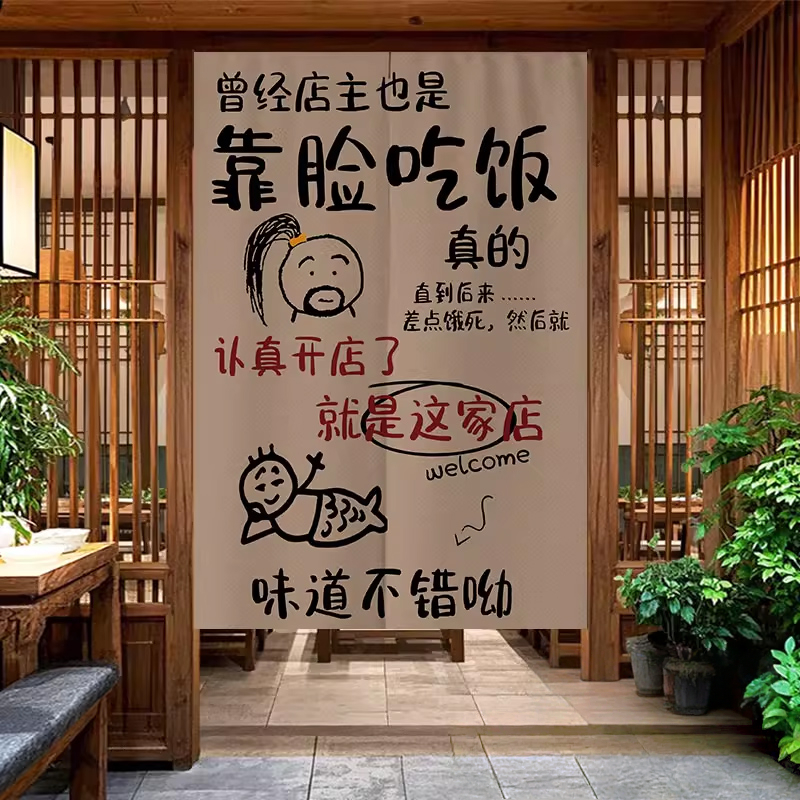 曾经店主也是
靠脸吃饭
真的
直到后来......
差点饿死，然后就
认真开店了
就是这家店
welcome
味道不错呦